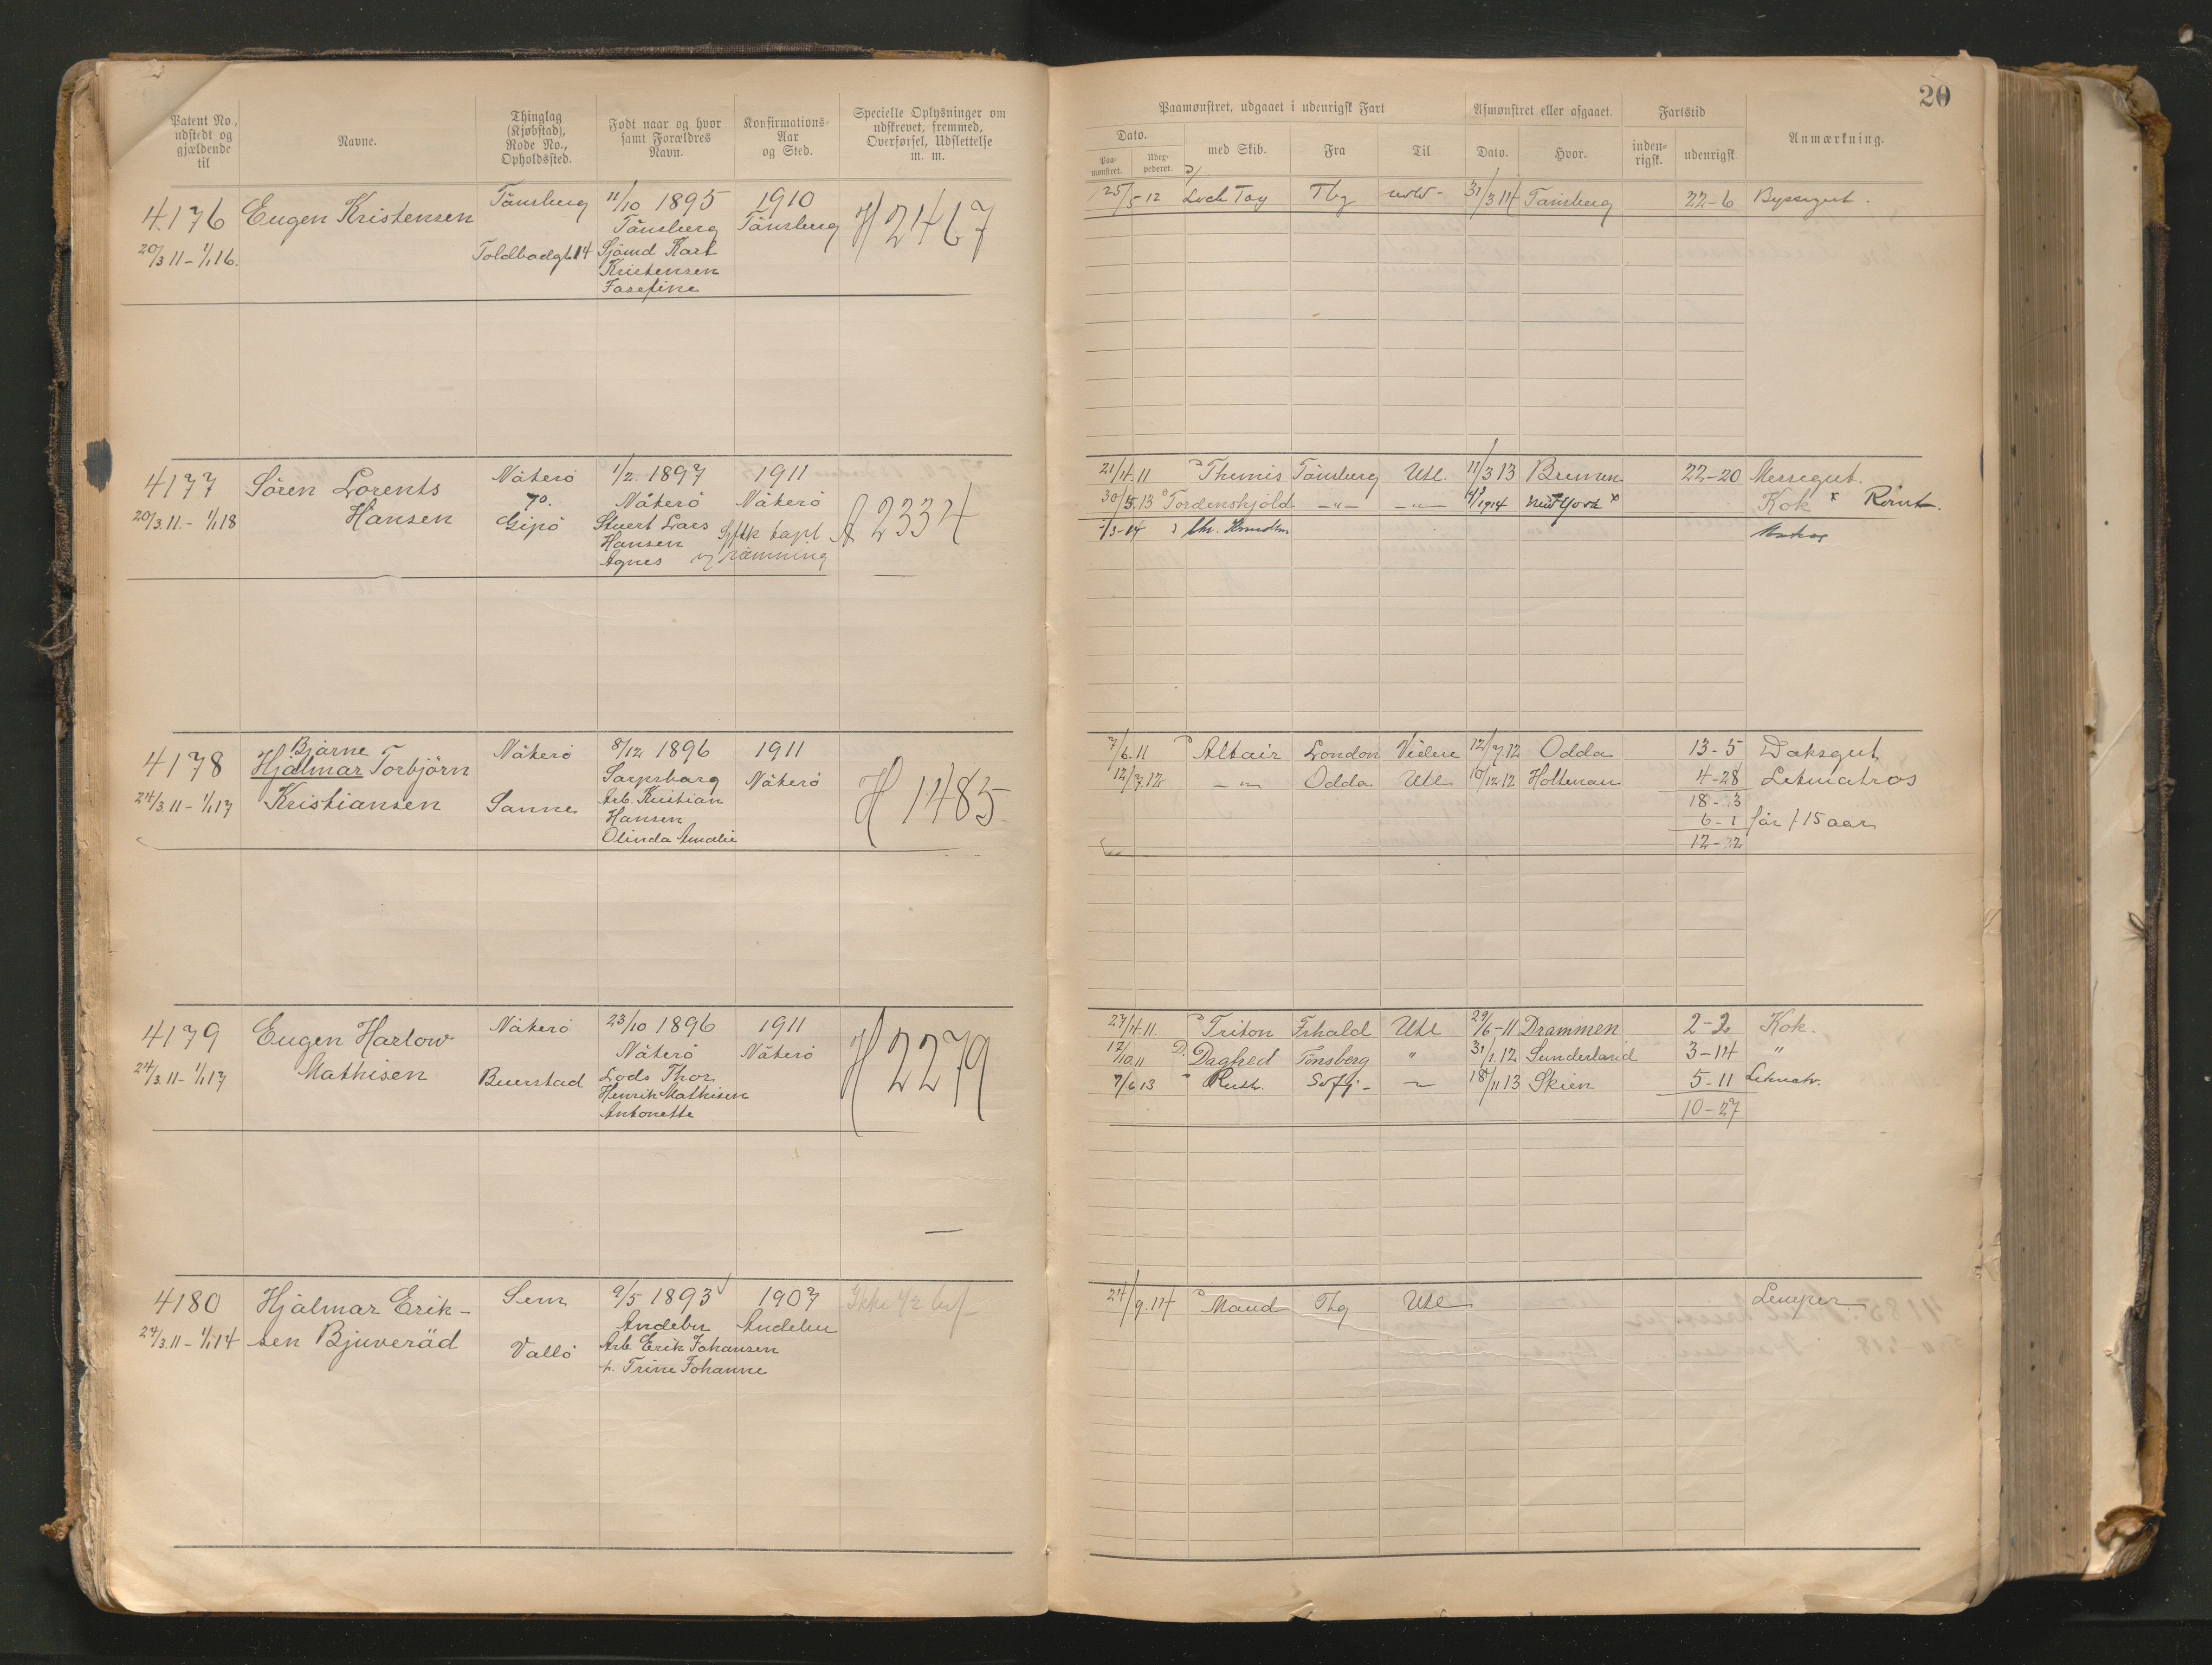 Patent No., udstedt og gjældende til
Navne.
Thinglag (Kjøbstad), Rode No., Opholdssted.
Født naar og hvor samt Forældres Navn.
Konfirmations-Aar og Sted.
Specielle Oplysninger om udskrevet, fremmed, Overførsel, Udslettelse m. m.
Paamønstret, udgaaet i udenrigsk Fart
Afmønstret eller afgaaet.
Fartstid
Anmærkning.
20
Dato.
Paa-mønstret.
med Skib.
Fra
Til
Dato.
Hvor.
inden-rigsk.
udenrigsk
4176
20/3 11 - 1/1 16.
Eugen Kristensen
Tönsberg
Toldbodgt 14
11/10 1895
Tönsberg
Sjömd Karl
Kristensen
Josefine
1910
Tönsberg
H 2467
25/5 12 Loch Tay Tbg 31/3 14 Tönsberg 22-6 Byssegut.
4177
20/3 11. - 1/1 18
Sören Lorents
Hansen
Nöterö
70.
Gipö
1/2 1897
Nöterö
Stuert Lars
Hansen
Agnes
1911
Nöterö
tapt
v/ römning
A 2334
21/4 11 Themis Tönsberg Utl. 11/3 13 Bremen 22-20 Messegut.
30/5 13 Tordenskjold -"- -"- 1914 New York x Kok x Römt.
4178
24/3 11 - 1/1 17
Bjarne
Hjalmar Torbjörn
Kristiansen
Nöterö
Sanne
8/12 1896
Sarpsborg
Arb. Kristian
Hansen
Olinda Amalie
1911
Nöterö
H 1485
7/6 11 Altair London Videre 12/7 12 Odda 13-5 Daksgut
12/7 12 -"- Odda Utl 10/12 12 Holtenau 4-28 Letmatros
18-3
6-1 før f 15 aar
12-22
4179
24/3 11 - 1/1 17
Eugen Harlow
Mathisen
Nöterö
Buerstad
23/10 1896
Nöterö
Lods Thor
Henrik Mathisen
Antonette
1911
Nöterö
H 2279
27/4 11. Triton Frhald Utl 29/6-11 Drammen 2-2 Kok.
12/10 11 D. Dagfred Tönsberg " 31/1 12 Sunderland 3-14 "
7/6 13 " Ruth. 18/11 13 Skien 5-11 Letmatr.
10-27
4180
24/3 11 - 1/1 14
Hjalmar Erik-
sen Bjuveråd
Sem
Vallö
9/5 1893
Andebu
Arb Erik Johansen
Trine Johanne
1907
Andebu
24/9 14 Maud Tbg Utl Lemper